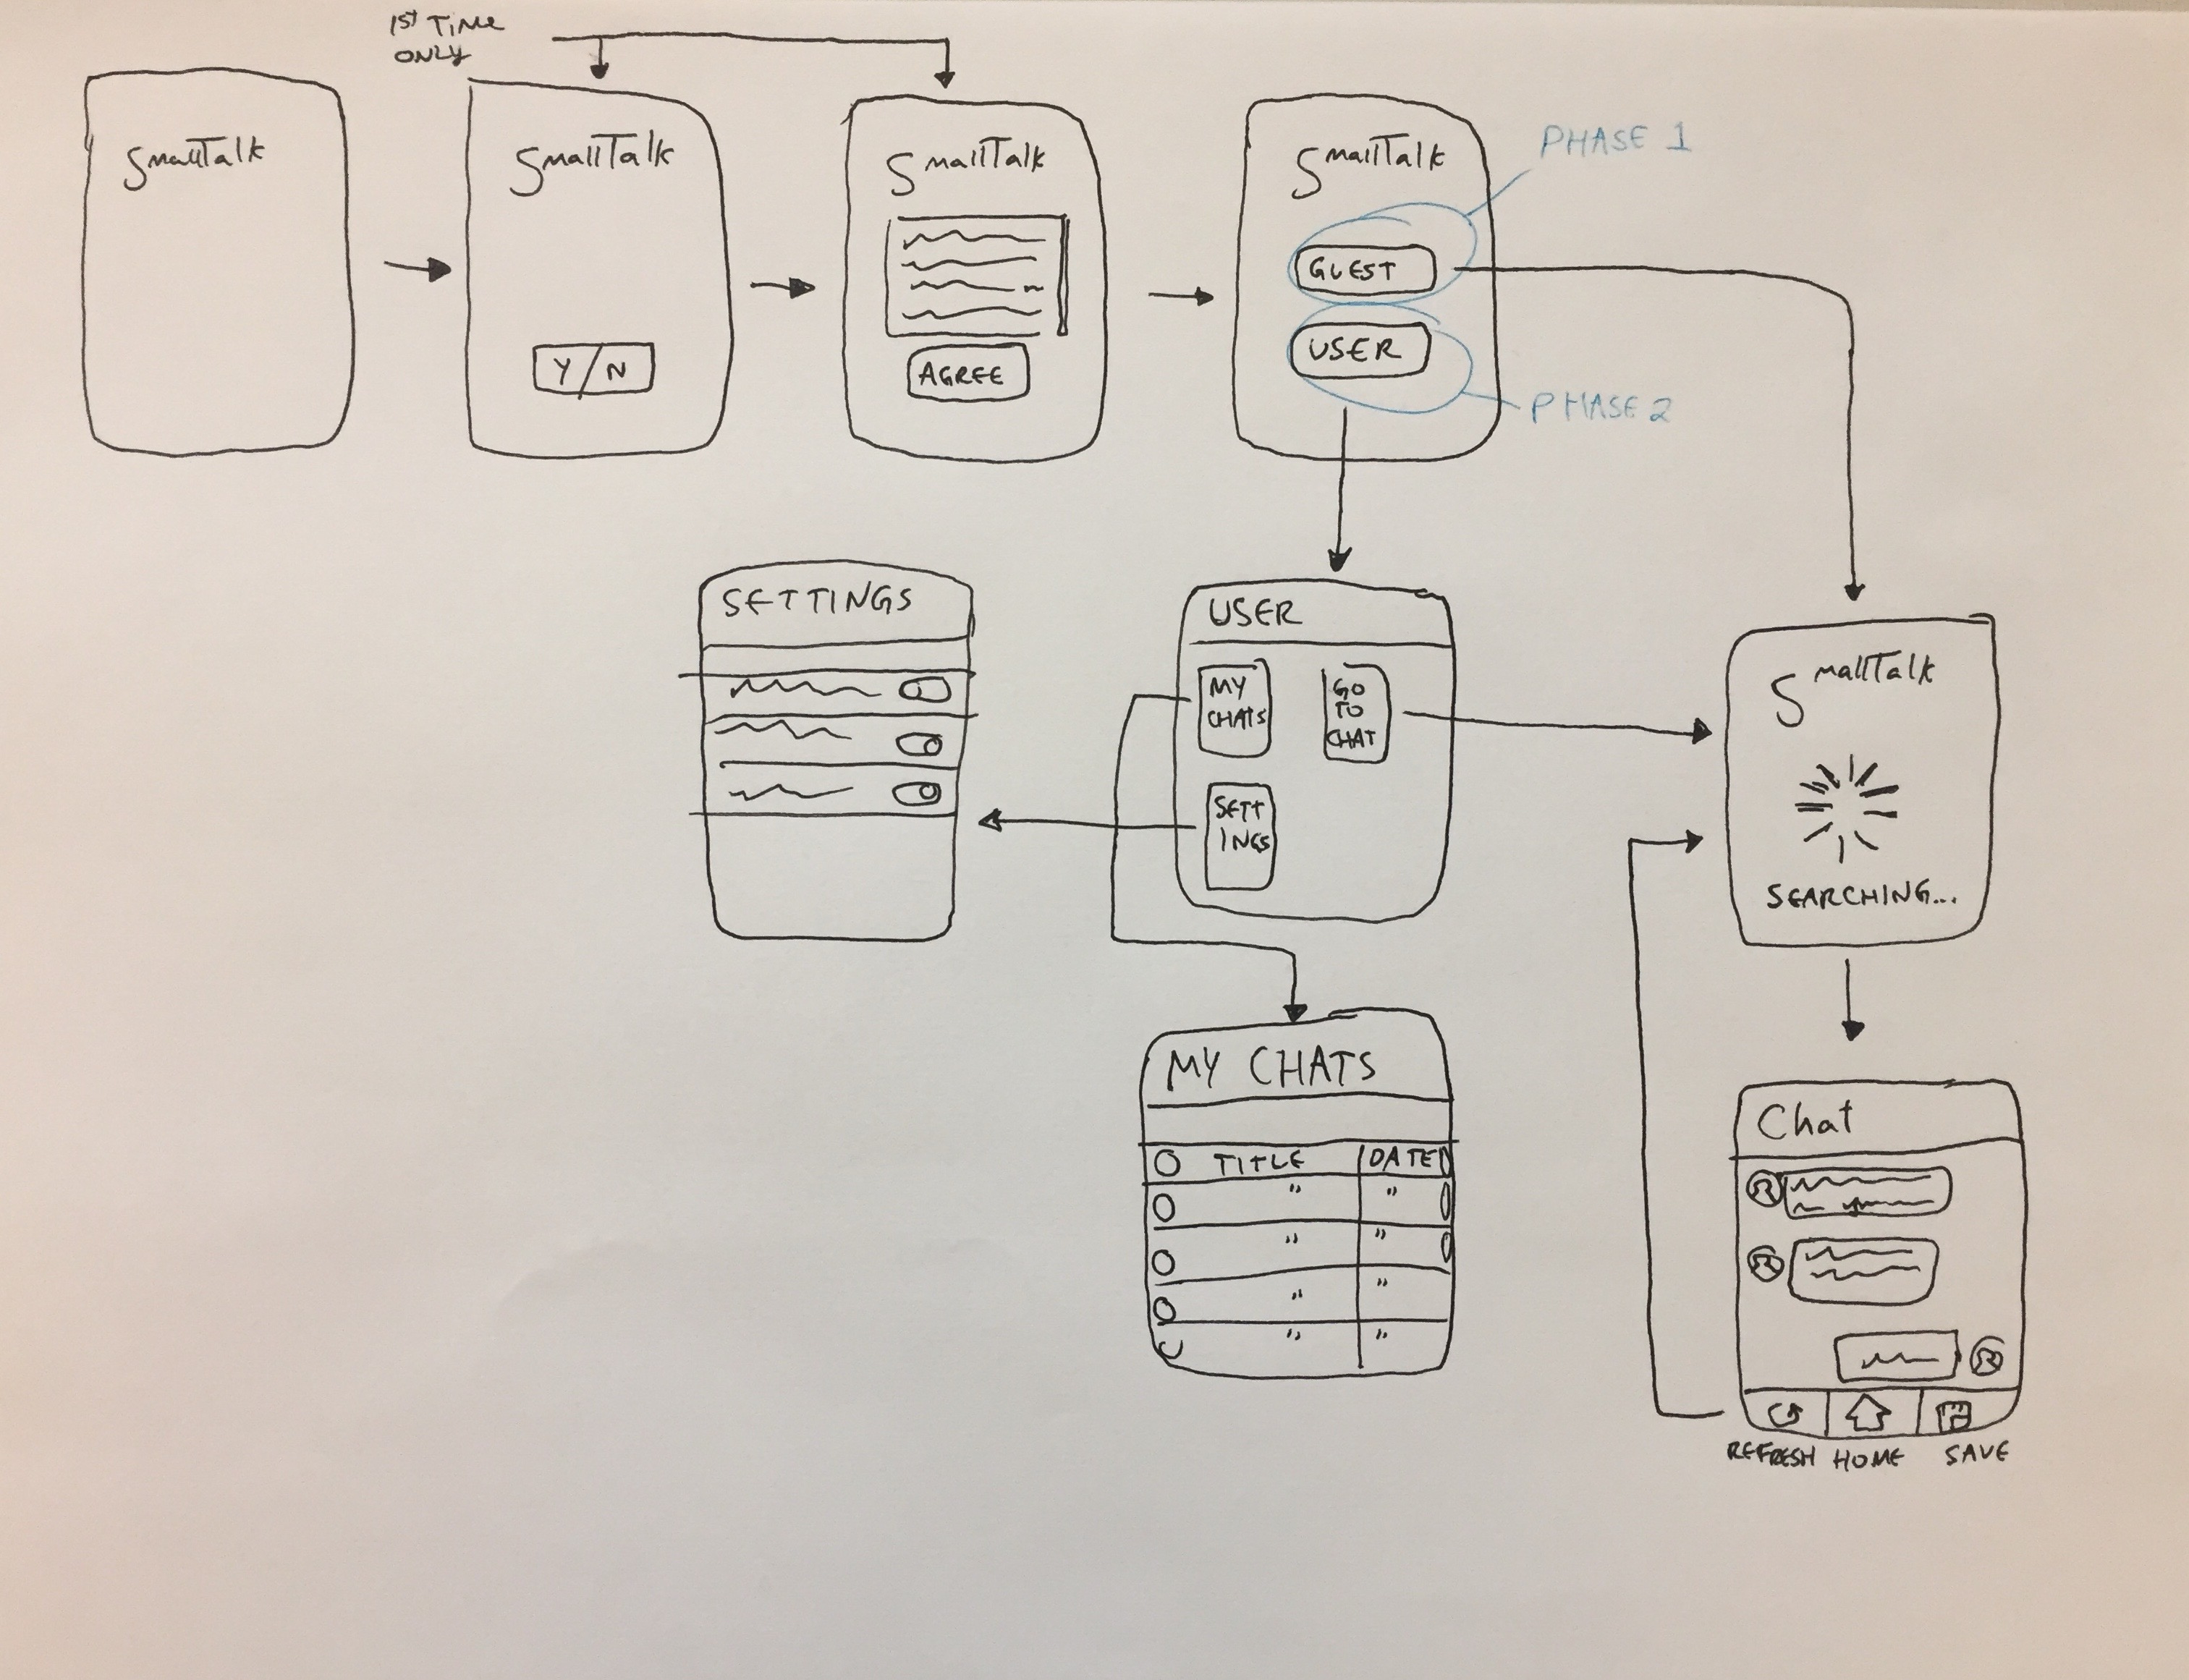 1st TIME
ONLY
SmallTalk
SmallTalk
Y/N
SmallTalk
AGREE
SmallTalk
GUEST
USER
PHASE 1
PHASE 2
SETTINGS
USER
MY
CHATS
GO
TO
CHAT
SETT
INGS
SmallTalk
SEARCHING...
MY CHATS
TITLE DATE
" "
" "
" "
" "
Chat
REFRESH HOME SAVE